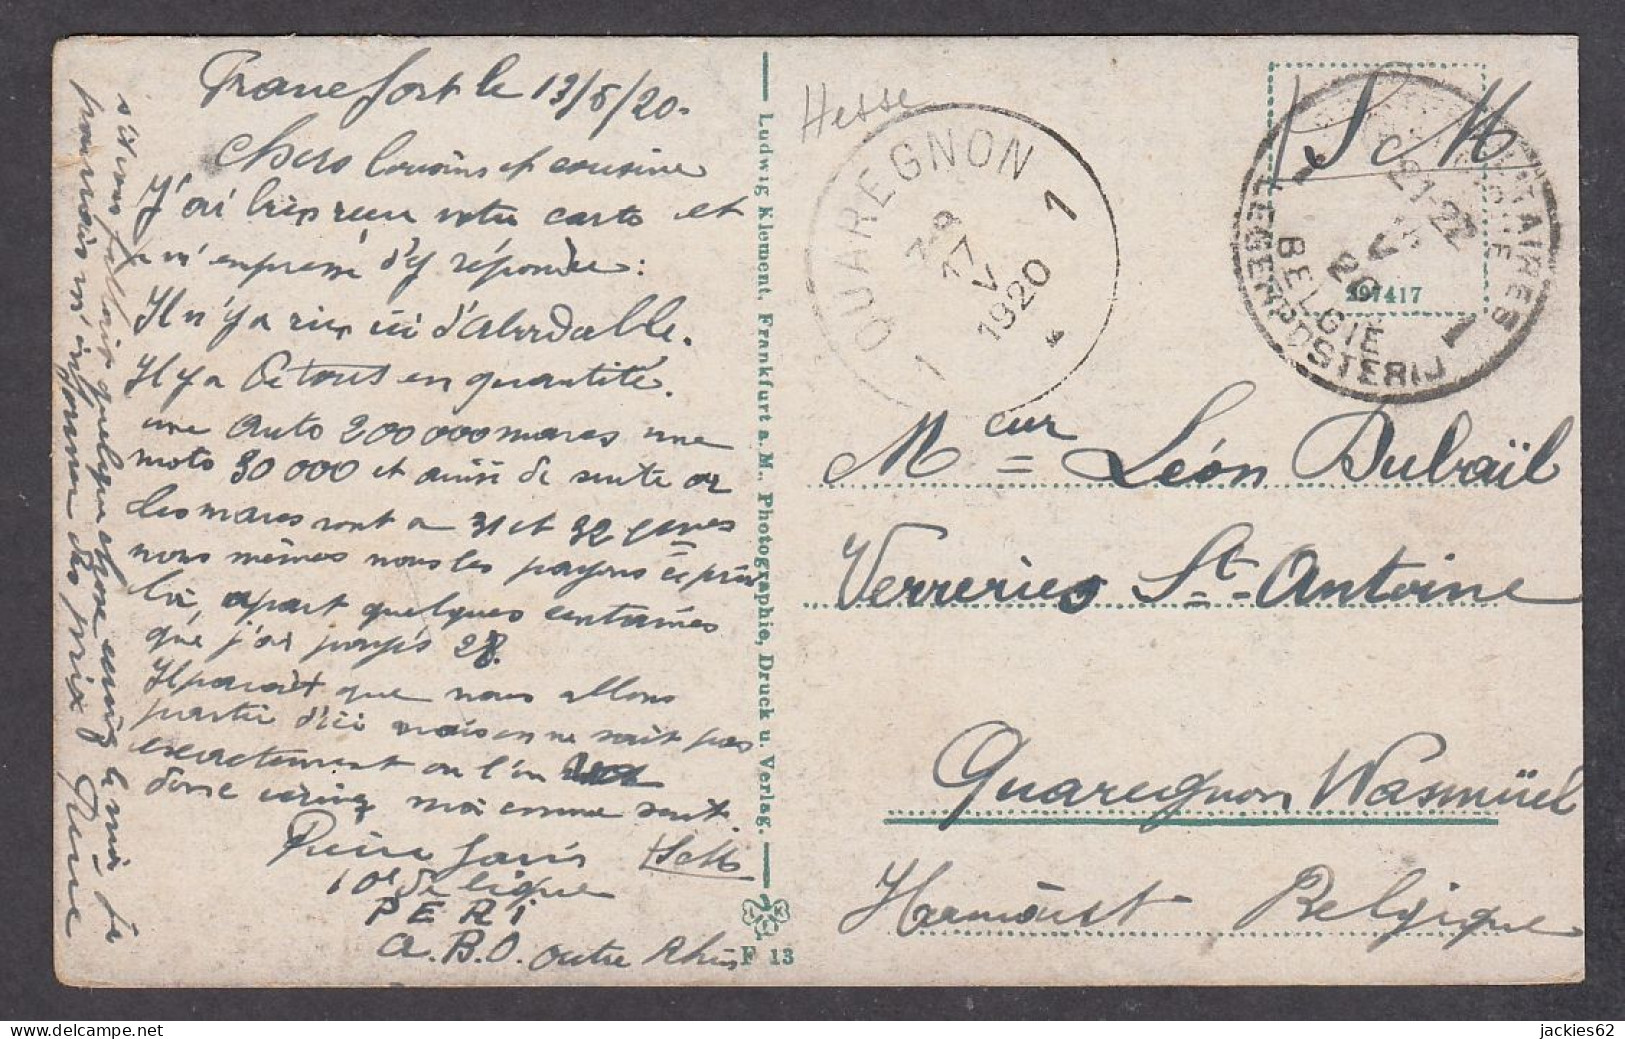 Francfort le 13/5/20.
Chers Cousins et cousine
J'ai bien reçu votre carte et
m'empresse d'y répondre:
Il n'y a rien ici d'abordable.
Il y a de tout en quantité.
une auto 200 000 marcs une
moto 30 000 et ainsi de suite or
les marcs sont a 31 et 32
nous mêmes nous les payons ce prix
là, apart quelques centaines
que j'ai payés 28.
Il parait que nous allons
partir d'ici mais on ne sait pas
exactement ou l'on
donc moi comme sent.
Pierre SM
10e de ligne
PERI
a.B.O. outre Rhin
s'il vous fallait quelque chose le moi je
pourrais m'informer des prix Pierre
Ludwig Klement, Frankfurt a. M., Photographie, Druck u. Verlag.
F 13
Hesse
QUAREGNON
7-8
17
V
1920
1
1
SM
MILITAIRES
BELGIE
LEGERPOSTERIJ
21-22
V
20
1
397417
Mceur Léon Dubail
Verreries St-Antoine
Quaregnon Wasmüel
Hainaut Belgique
jackies62